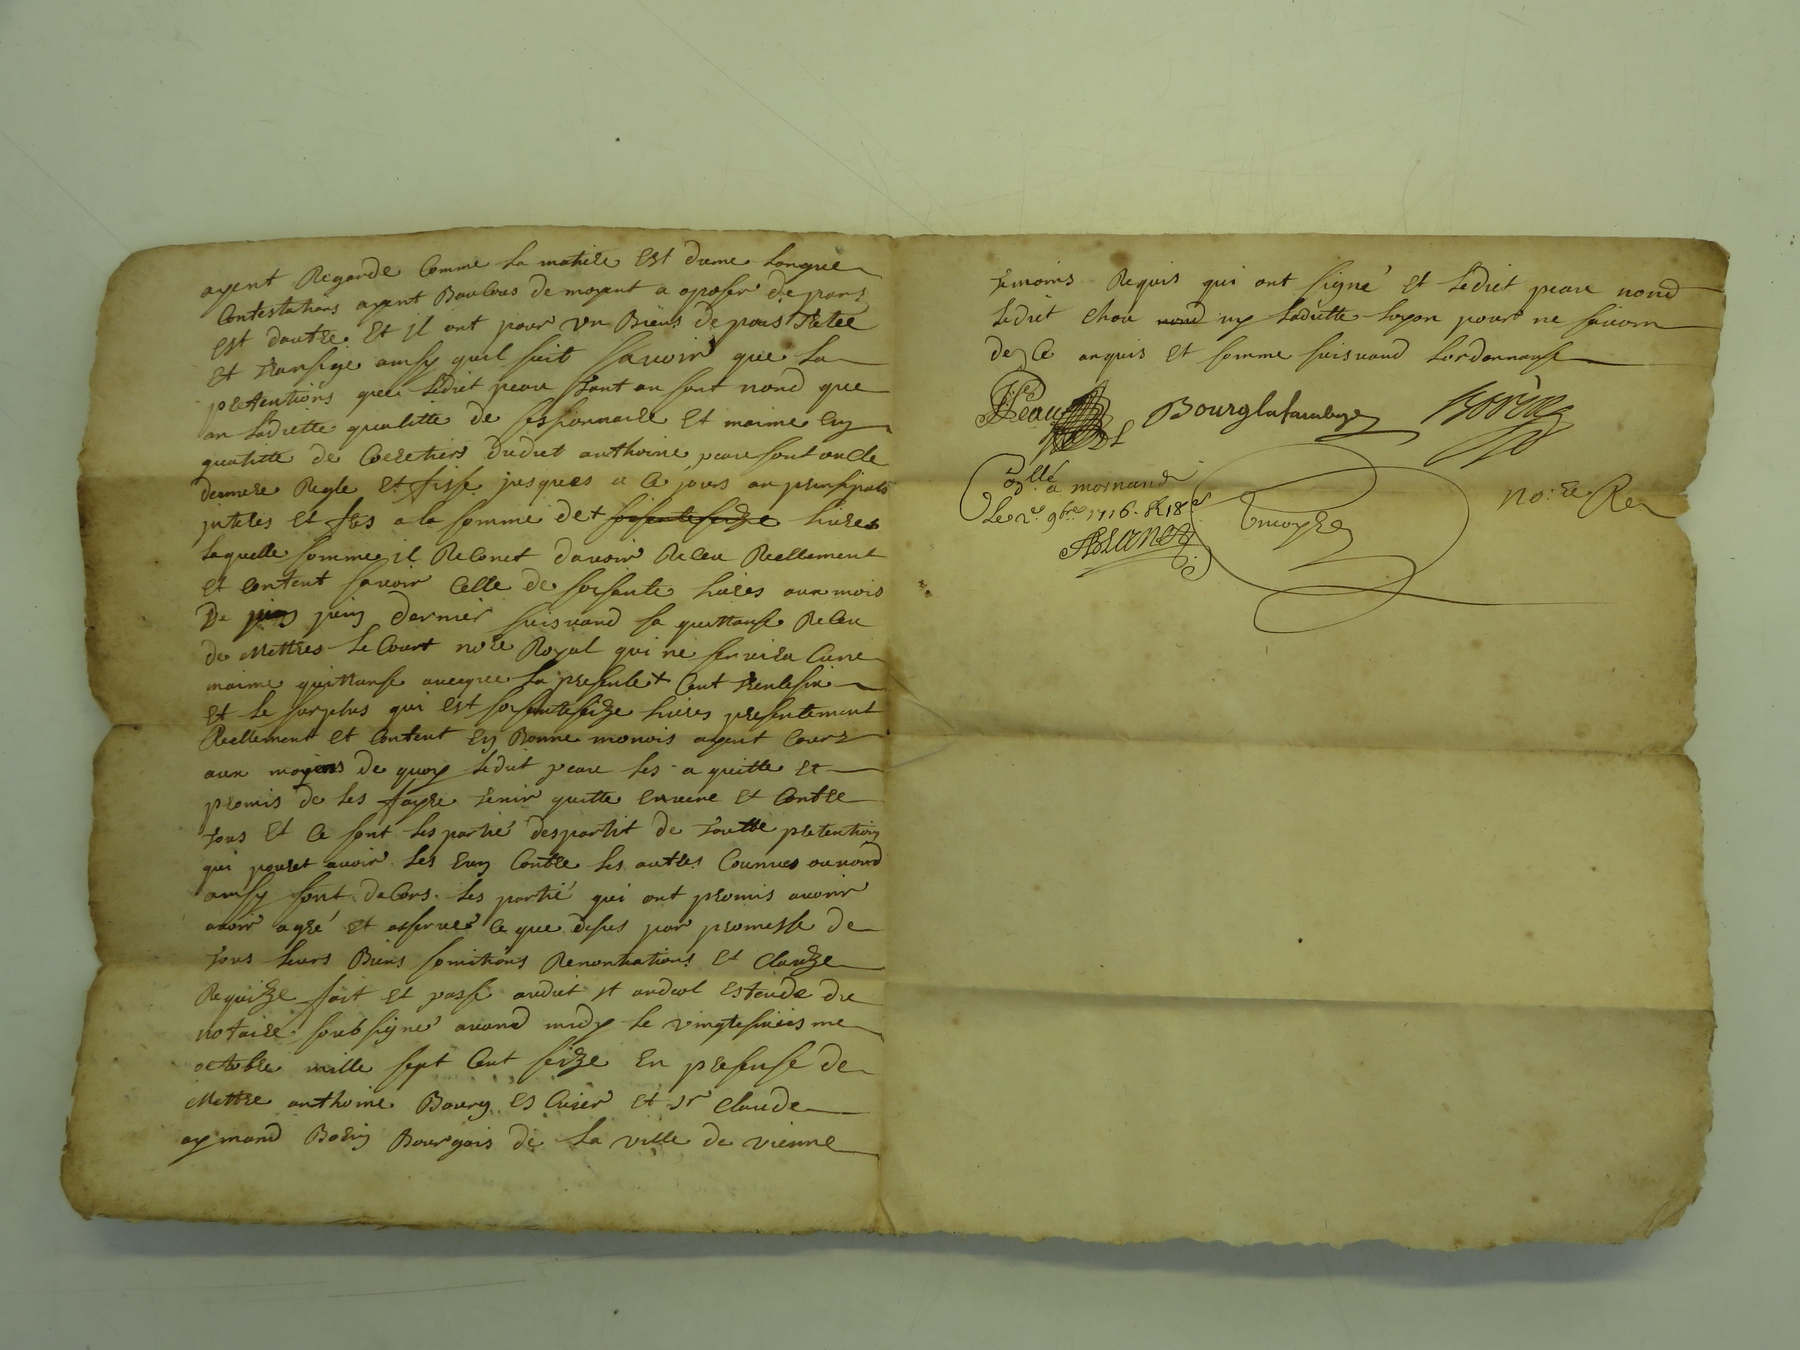 ayent Regarde Comme la matiere Est dune longue
Contestations ayent Baucous de moyent a oposer de pars
Est dautre Et il ont pour un Biens de pais Trétée
Et transige ainsy quil suit savoir que la
pretentions que ledict peau tant an sont nond que
an ladiette qualitte de sessionnaire Et maime En
qualitte de Coeretiers dudict anthoine peau sont oncle
demeure Regle Et fisse jusques a Ce jours an prinsipals
interes Et fres a la somme de + sosenteseize livres
laquelle somme il Reconet davoir Receu Reellement
Et Content savoir Celle de sosente livres aux mois
De juin dernier suisvand sa quittanse Receu
de Mettres le Court no.re Royal qui ne servira Cune
maime quittanse avecque la presente + Cent trentesix
Et le surplus qui Est sosenteseize livres presentement
Reellement Et Content En Bonne monois ayent Cours
aux moyens de quoy ledit peau les a quitte Et
promis de les fayre tenir quitte envene Et Contre
tous Et Ce sont les partie despartit de toutte pretention
qui pouret avoir les Eun Contre les autres Connues ou nond
ainsy sont daCors les partié qui ont promis avoir
avoir agré Et oserver Ce que desus par promesse de
tous leurs Biens somitions Renontiations Et Clauze
Requize fait Et passé audict st andeol Estude du
notaire soubsigné avand midy le vingtesixiesme
octobre mille sept Cent seize En presense de
Mettre anthoine Bourg Es Cuier Et sr Claude
aymand Borin Bourgois de la ville de vienne
temoins Requis qui ont signé Et ledict peau nond
ledict Chou nond ny ladictte loyon pour ne savoir
de Ce anquis Et somme suisvand lordonnanse
Peau Bourglafarulye Borin
Collé a mornand
Le 2e 9bre 1716. R 18s
no:re Re